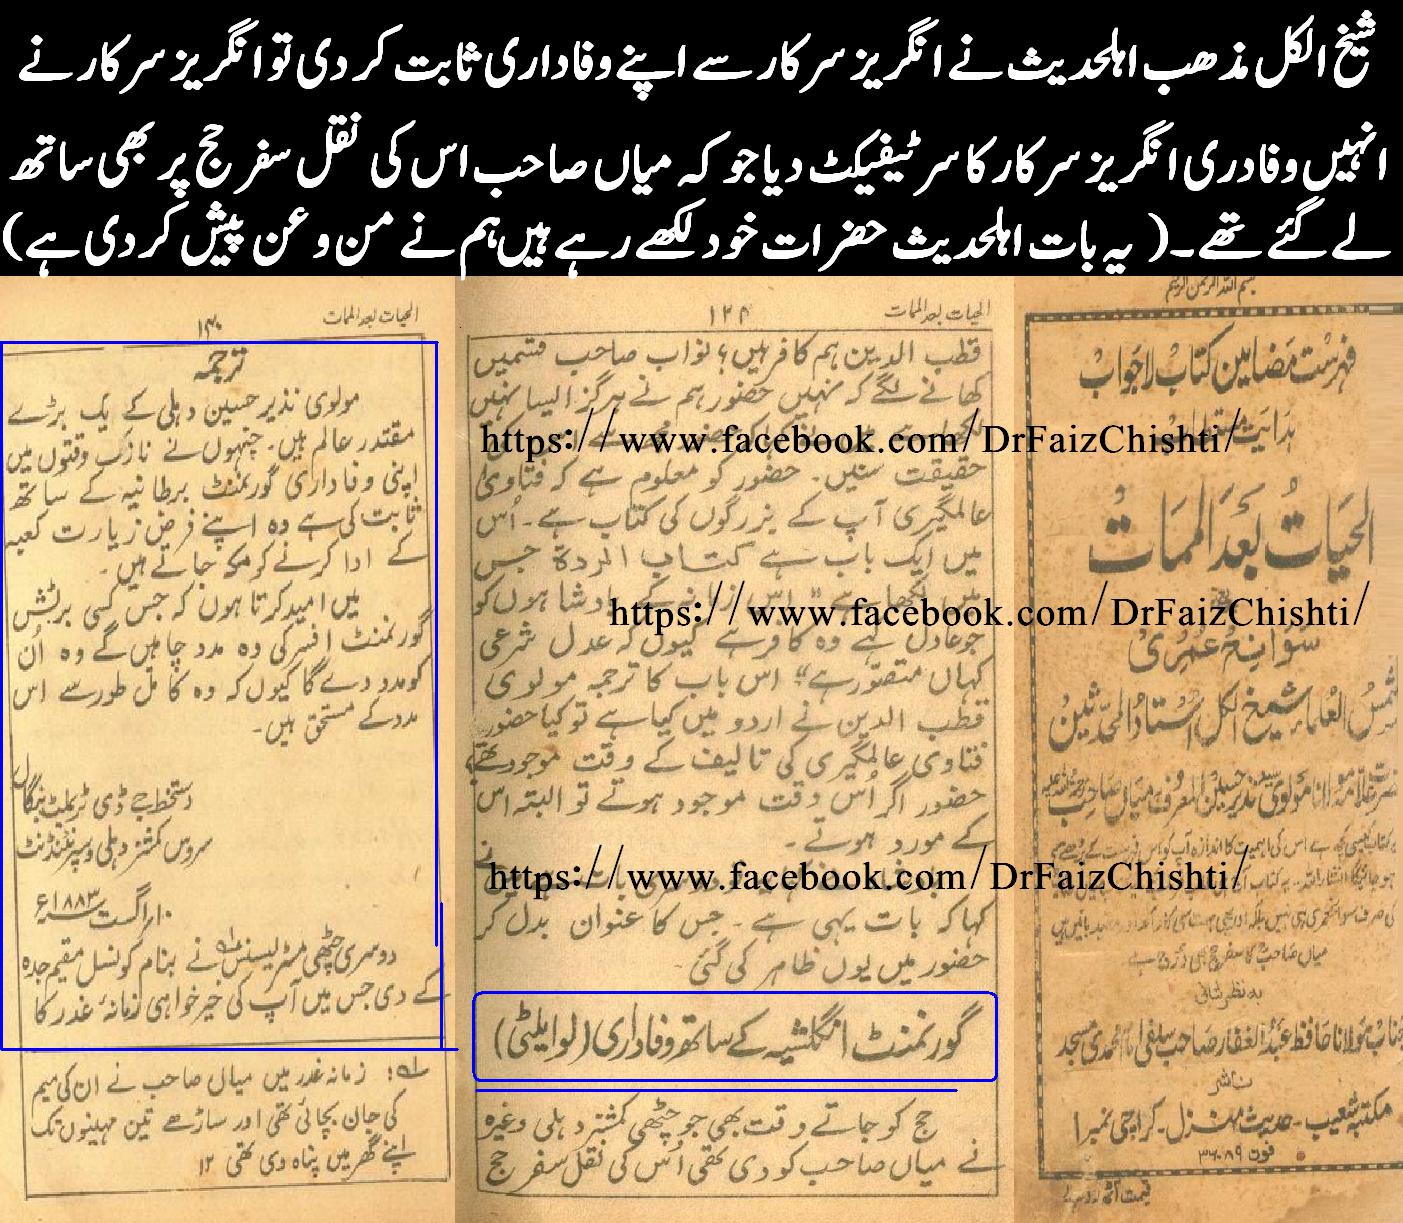 شیخ الکل مذھب اہلحدیث نے انگریز سرکار سے اپنے وفاداری ثابت کر دی تو انگریز سرکار نے
انہیں وفادری انگریز سرکار کا سرٹیفیکٹ دیا جو کہ میاں صاحب اس کی نقل سفر حج پر بھی ساتھ
لے گئے تھے۔( یہ بات اہلحدیث حضرات خود لکھے رہے ہیں ہم نے من و عن پیش کر دی ہے)
بسم اللہ الرحمن الرحیم
فہرست مضامین کتاب لاجواب
الحیات بعد الممات
سوانح عمری
شمس العلماء شیخ الکل استاد المحدثین
میاں صاحب کا سفر حج بھی درج ہے
بہ نظر ثانی
جناب مولانا حافظ عبد الغفار صاحب سلفی امام محمدی مسجد
ناشر
مکتبہ شعیب - حدیث منزل - کراچی نمبر ۱
فون ۳۶۰۸۹
الحیات بعد الممات
قطب الدین ہم کافر ہیں؟ نواب صاحب قسمیں
کھانے لگے کہ نہیں حضور ہم نے ہرگز ایسا نہیں
https://www.facebook.com/DrFaizChishti/
حقیقت سنیں۔ حضور کو معلوم ہے کہ فتاویٰ
عالمگیری آپ کے بزرگوں کی کتاب ہے۔ اُس
میں ایک باب ہے کتاب الردۃ جس
میں لکھا ہے "اس زمانے کے بادشاہوں کو
https://www.facebook.com/DrFaizChishti/
جو عادل کہے وہ کافر ہے کیوں کہ عدل شرعی
کہاں متصوّر ہے" اس باب کا ترجمہ مولوی
قطب الدین نے اردو میں کیا ہے تو کیا حضور
فتاوی عالمگیری کی تالیف کے وقت موجود تھے،
حضور اگر اُس وقت موجود ہوتے تو البتہ اس
کے مورد ہوتے۔
https://www.facebook.com/DrFaizChishti/
کہا کہ بات یہی ہے۔ جس کا عنوان بدل کر
حضور میں یوں ظاہر کی گئی
گورنمنٹ انگلشیہ کے ساتھ وفاداری (لوایلیٹی)
حج کو جاتے وقت بھی جو چٹھی کمشنر دہلی وغیرہ
نے میاں صاحب کو دی تھی اُس کی نقل سفر حج
الحیات بعد الممات
۱۴۰
ترجمہ
مولوی نذیر حسین دہلی کے ایک بڑے
مقتدر عالم ہیں۔ جنہوں نے نازک وقتوں میں
اپنی وفاداری گورنمنٹ برطانیہ کے ساتھ
ثابت کی ہے وہ اپنے فرض زیارت کعبہ
کے ادا کرنے کو مکہ جاتے ہیں۔
میں امید کرتا ہوں کہ جس کسی برٹش
گورنمنٹ افسر کی وہ مدد چاہیں گے وہ اُن
کو مدد دے گا کیوں کہ وہ کامل طور سے اس
مدد کے مستحق ہیں۔
دستخط جے ڈی ٹریملیٹ بنگال
سروس کمشنر دہلی و سپرنٹنڈنٹ
۱۰ اگست ۱۸۸۳ء
دوسری چٹھی مسٹر لیسنس نے بنام کونسل مقیم جدہ
کے دی جس میں آپ کی خیر خواہی زمانۂ غدر کا
زمانہ غدر میں میاں صاحب نے ان کی میم
کی جان بچائی تھی اور ساڑھے تین مہینوں تک
اپنے گھر میں پناہ دی تھی ۱۲